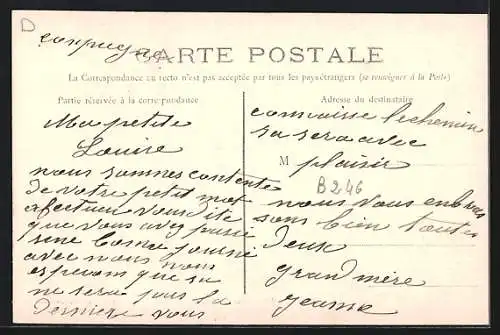 D
CARTE POSTALE
La Correspondance au recto n'est pas acceptée par tous les pays étrangers (se renseigner à la Poste)
Partie réservée à la correspondance
Ma petite
Louise
nous sommes contente
de votre petit mot
afectueu vous dite
que vous avez passé
une bonne journé
avec nous nous
esperons que sa
ne sera pas la
derniere vous
Adresse du destinataire
connaisse le chemin
sa sera avec
M plaisir
B246
nous vous enbras
sons bien toutes
deux
grand mère
Jeanne